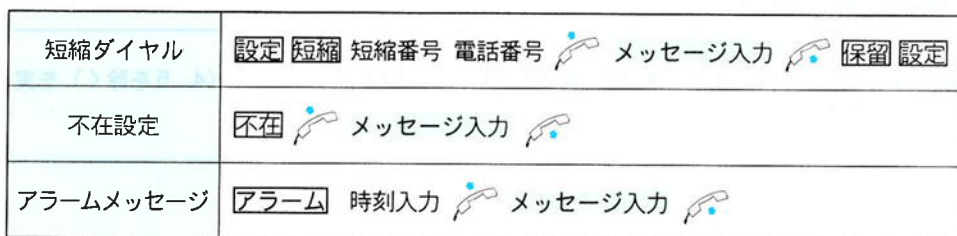 短縮ダイヤル 設定 短縮 短縮番号 電話番号 メッセージ入力 保留 設定
不在設定 不在 メッセージ入力
アラームメッセージ アラーム 時刻入力 メッセージ入力